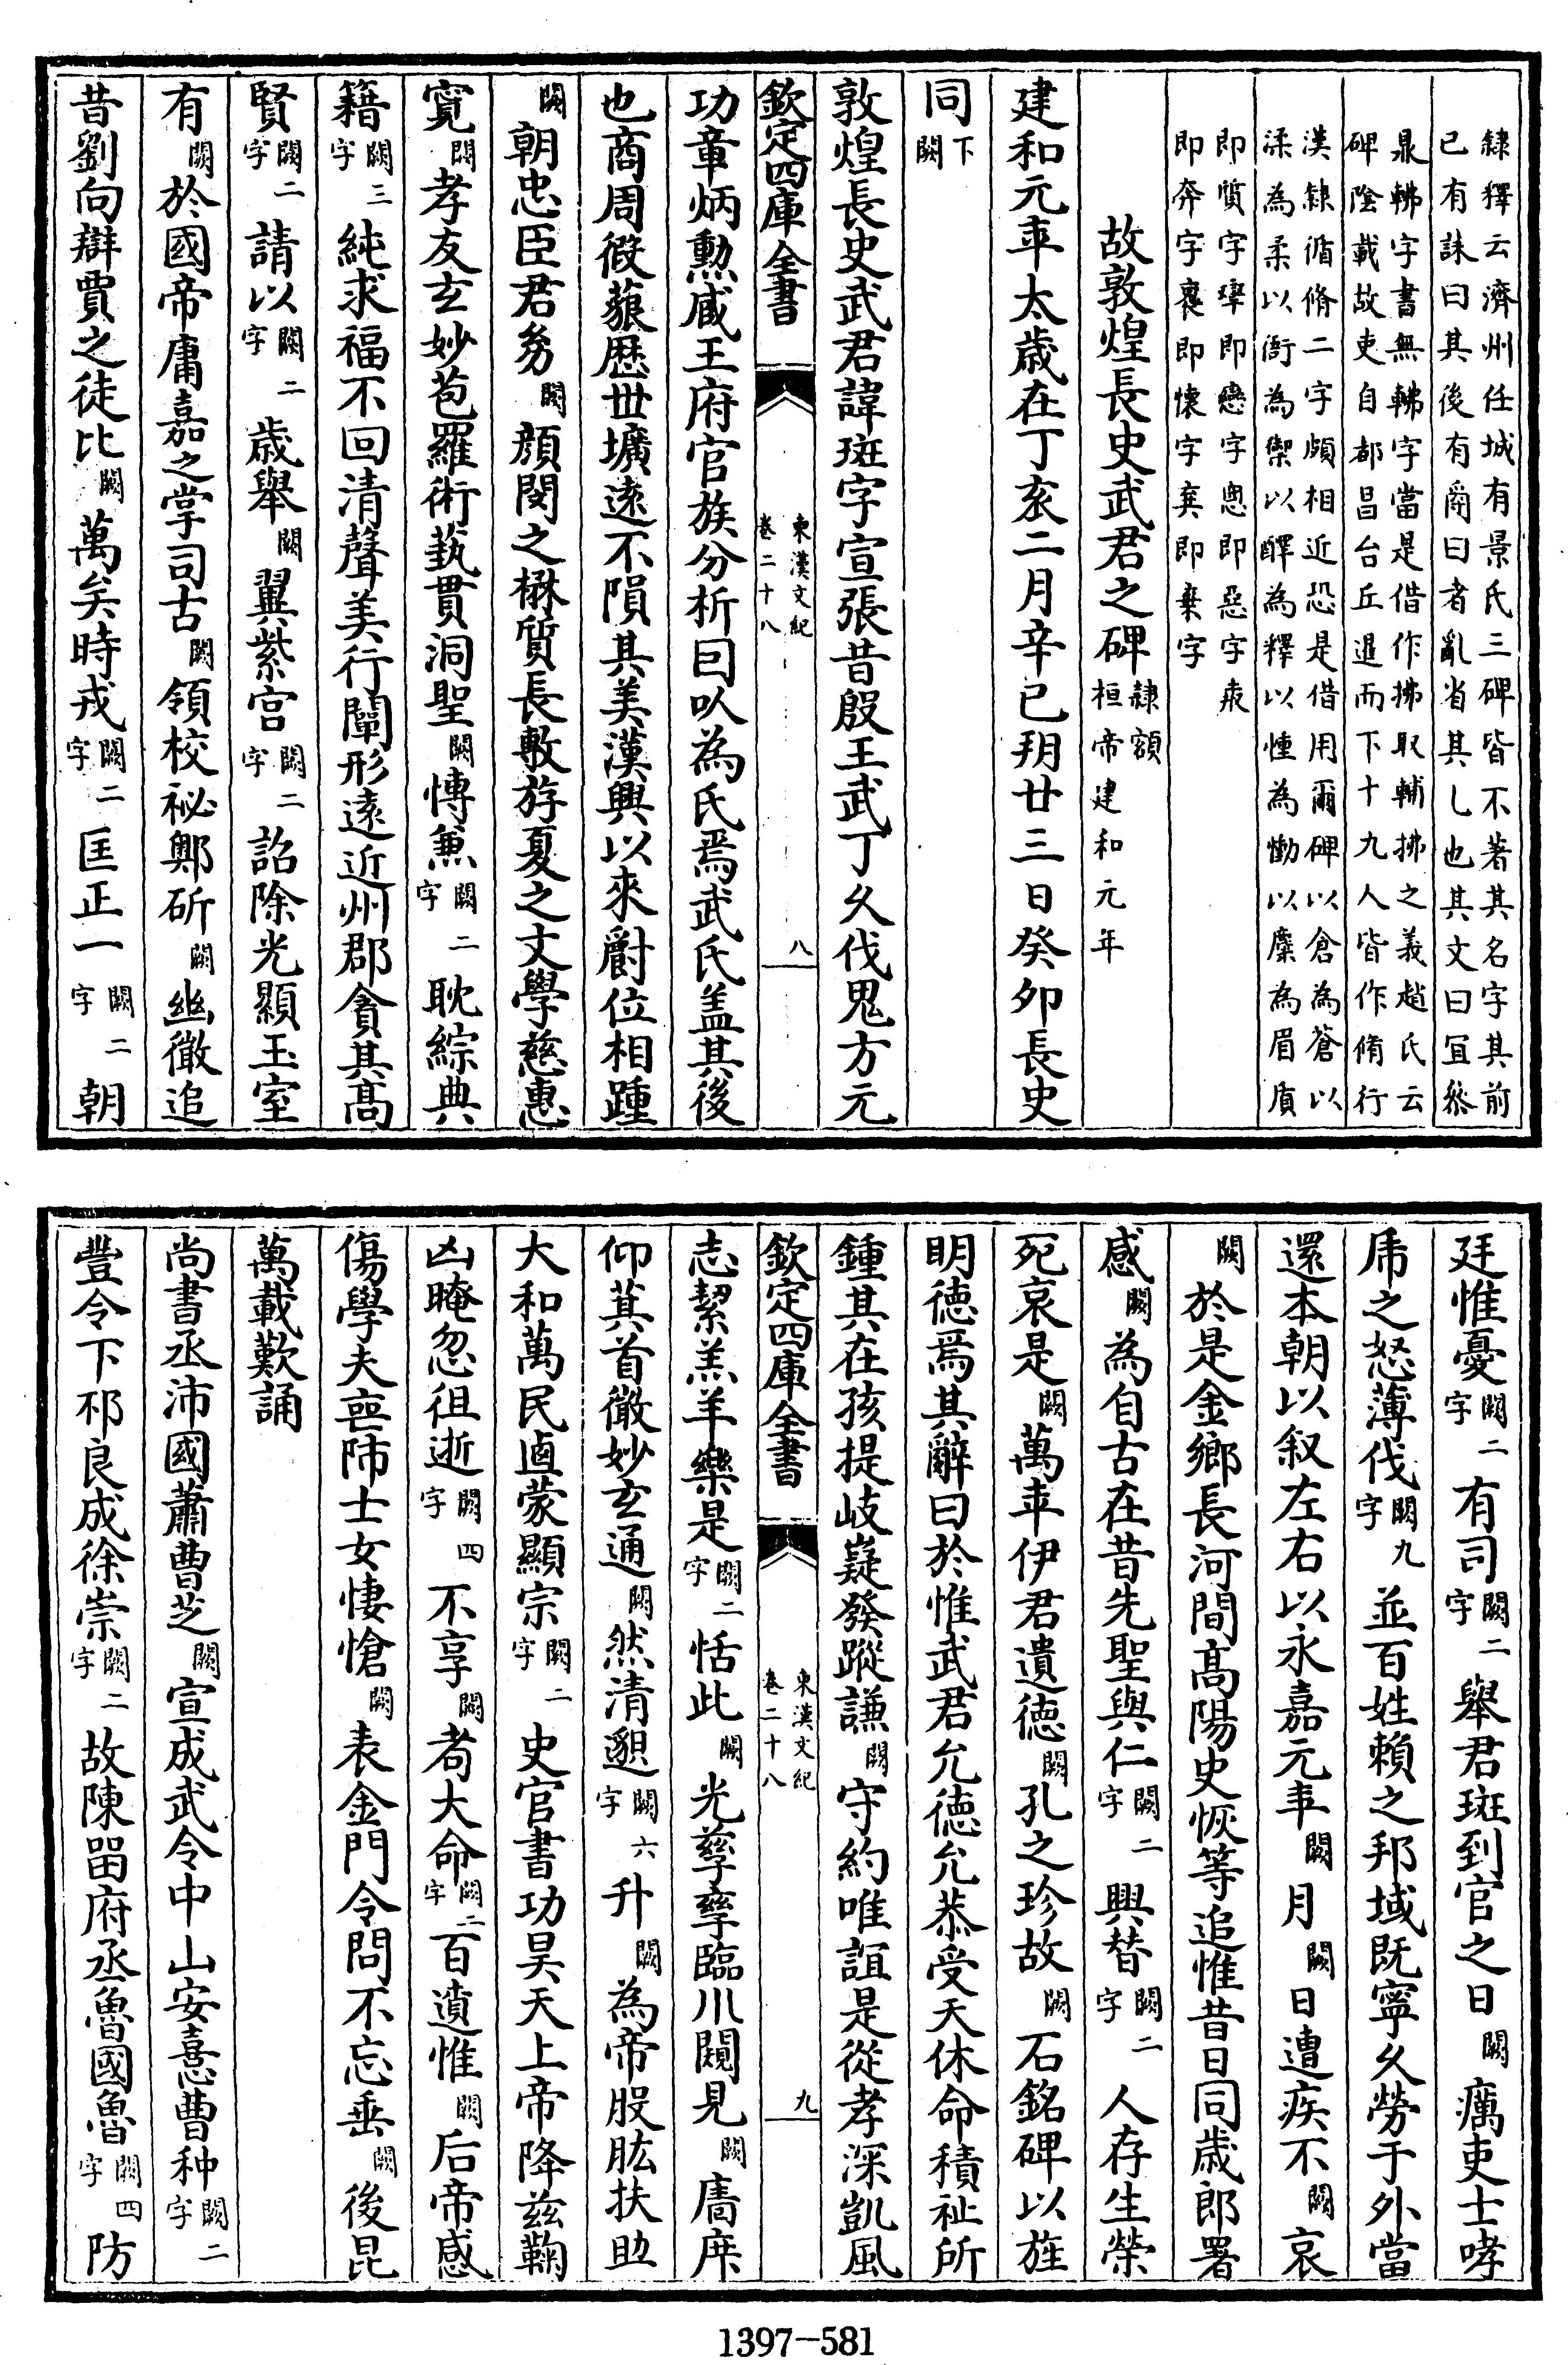 隸釋云濟州任城有景氏三碑皆不著其名字其前
已有誄曰其後有𤔲曰者亂省其乚也其文曰冝叅
鼎軵字書無軵字當是借作拂取輔拂之義趙氏云
碑陰載故吏自都昌台丘暹而下十九人皆作脩行
漢隸循脩二字頗相近恐是借用爾碑以倉為蒼以
渘為柔以衙為禦以醳為釋以慟為慟以麋為眉㡾
即質字㹂即戀字悤即惡字㡿
即奔字褱即懷字㐮即棄字
故敦煌長史武君之碑隸額桓帝建和元年
建和元年太歳在丁亥二月辛巳朔廿三日癸卯長史
同下闕
敦煌長史武君諱班字宣張昔殷王武丁久伐鬼方元
欽定四庫全書
東漢文紀
卷二十八
八
功章炳勲臧王府官族分析囙以為氏焉武氏蓋其後
也商周假藐歴世壙逺不隕其美漢興以來爵位相踵
闕朝忠臣君㓜闕顔閔之楙質長敷㳺夏之文學慈惠
寛闕孝友玄妙苞羅術藝貫洞聖闕博兼闕二字耽綜典
籍闕三字純求福不回清聲美行闡形逺近州郡貪其髙
賢闕二字請以闕二字歳舉闕翼紫宫闕二字詔除光顯玉室
有闕於國帝庸嘉之掌司古闕領校祕鄭斫闕幽微追
昔劉向辯賈之徒比闕萬矣時戎闕二字匡正一闕二字朝
廷惟憂闕二字有司闕二字舉君班到官之日闕癘吏士哮
虎之怒薄伐闕九字並百姓賴之邦域既寧久勞于外當
還本朝以叙左右以永嘉元年闕月闕日遭疾不闕哀
闕於是金鄉長河間髙陽史恢等追惟昔日同歳郎署
感闕為自古在昔先聖與仁闕二字興替闕二字人存生榮
死哀是闕萬年伊君遺徳闕孔之珍故闕石銘碑以旌
明徳焉其辭曰於惟武君允徳允恭受天休命積祉所
鍾其在孩提岐嶷發蹤謙闕守約唯誼是從孝深凱風
欽定四庫全書
東漢文紀
卷二十八
九
志絜羔羊樂是闕二字恬此闕光孳孳臨川闚見闕廧庠
仰其首微妙玄通闕然清邈闕六字升闕為帝股肱扶助
大和萬民迺蒙顯宗闕二字史官書功昊天上帝降兹鞠
凶晻忽徂逝闕四字不享闕耉大命闕二字百遺惟闕后帝感
傷學夫喪師士女悽愴闕表金門令問不忘垂闕後昆
萬載歎誦
尚書丞沛國蕭曹芝闕宣成武令中山安憙曹种闕二字
豐令下邳良成徐崇闕二字故陳畱府丞魯國魯闕四字防
1397-581